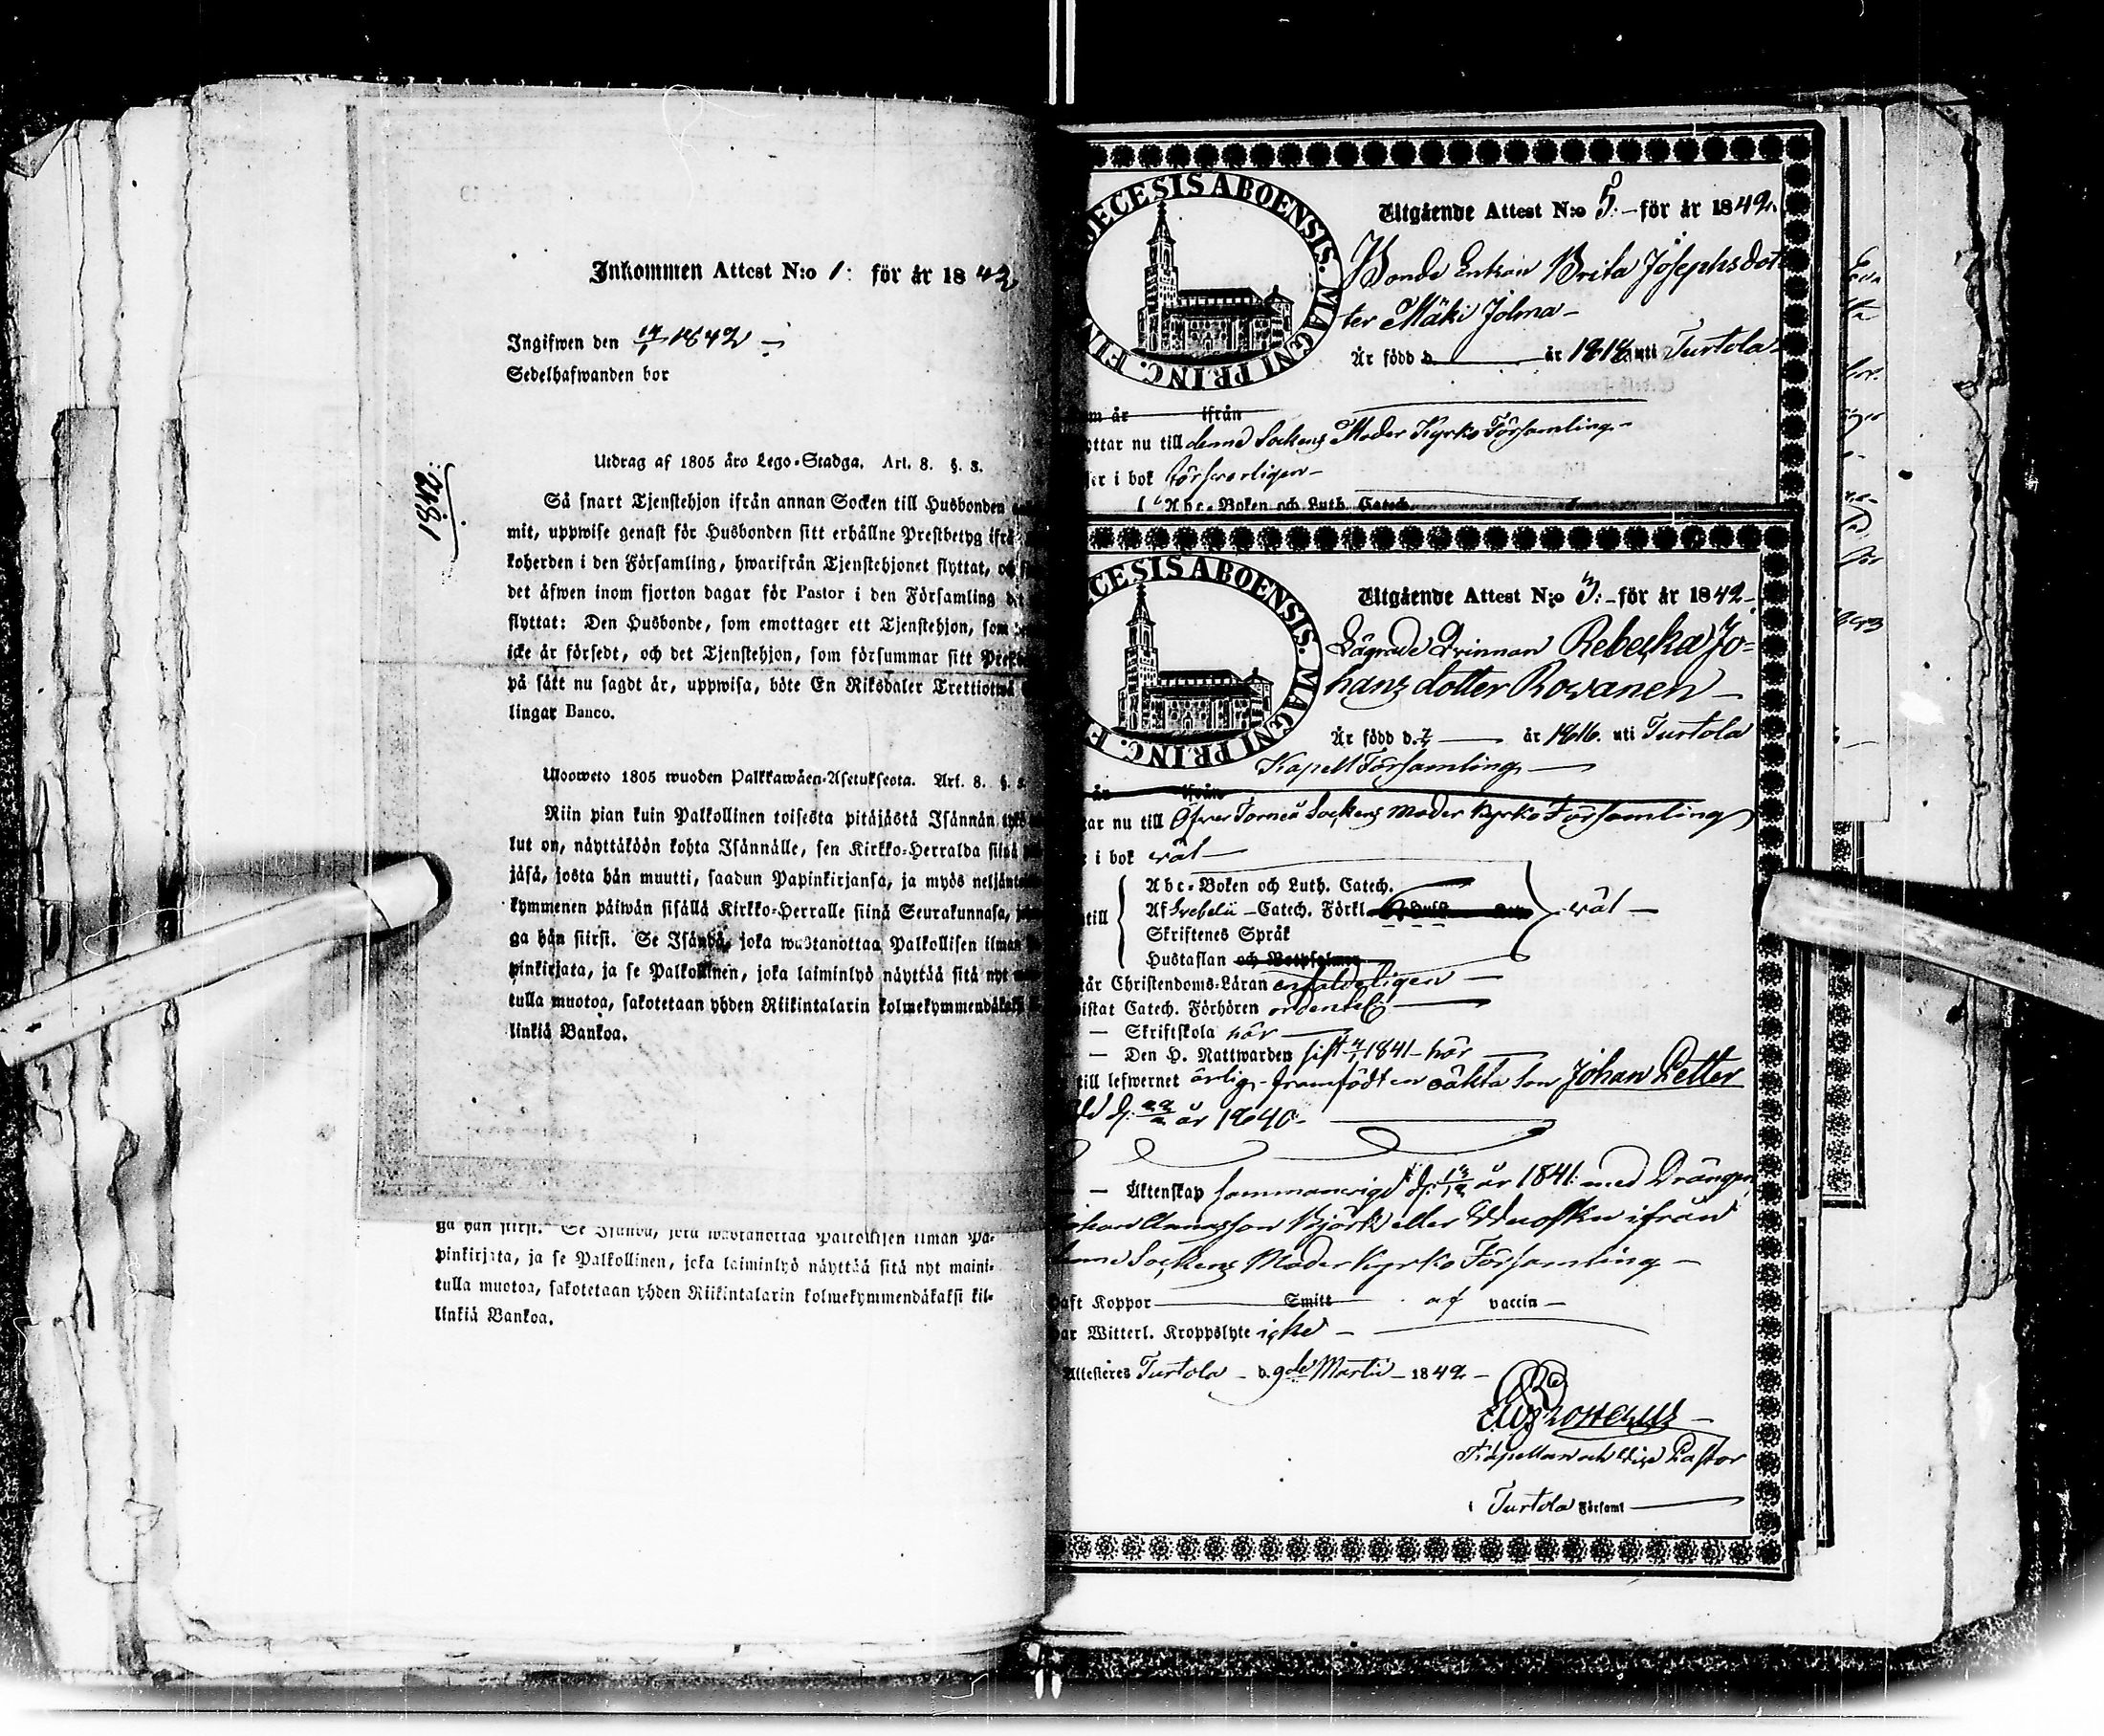 Inkommen Attest N:o 1: för år 1842
Ingifwen den 14/1 1842 –
Sedelhafwanden bor
1842:
Utdrag af 1805 års Lego-Stadga. Art. 8. §. 8.
Så snart Tjenstehjon ifrån annan Socken till Husbonden
mit, uppwise genast för Husbonden sitt erhållne Prestbetyg ifrå
koherden i den Församling, hwarifrån Tjenstehjonet flyttat, oc
det äfwen inom fjorton dagar för Pastor i den Församling
flyttat: Den Husbonde, som emottager ett Tjenstehjon, som
icke är försedt, och det Tjenstehjon, som försummar sitt Prest
på sätt nu sagdt är, uppwisa, böte En Riksdaler Trettiotwå
lingar Banco.
Ulosweto 1805 wuoden Palkkawäen-Asetuksesta. Art. 8. §. 8.
Niin pian kuin Palkollinen toisesta pitäjästä Isännän tykö
lut on, näyttäköön kohta Isännälle, sen Kirkko-Herralda siinä
jäsä, josta hän muutti, saadun Papinkirjansa, ja myös neljäntoista
kymmenen päiwän sisällä Kirkko-Herralle siinä Seurakunnasa,
ga hän siirsi. Se Isändä, joka wastanottaa Palkollisen ilman
pinkirjata, ja se Palkollinen, joka laiminlyö näyttää sitä nyt
tulla muotoa, sakotetaan yhden Riikintalarin kolmekymmendäkaksi
linkiä Bankoa.
ga hän siirsi. Se Isändä, joka wastanottaa Palkollisen ilman Pa-
pinkirjata, ja se Palkollinen, joka laiminlyö näyttää sitä nyt maini-
tulla muotoa, sakotetaan yhden Riikintalarin kolmekymmendäkaksi kil-
linkiä Bankoa.
ECESIS ABOENSIS. MAGNI PRINC. FIN
Utgående Attest N:o 5. – för år 1842.
Bonde Enkan Brita Josephsdot
ter Mäki Jolma –
Är född d. år 1818 uti Turtola
om år ifrån
yttar nu till denna Sockens Moder Kyrko Församling –
er i bok försvarligen –
Abc-Boken och Luth. Catech.
CESIS ABOENSIS. MAGNI PRINC. F
Utgående Attest N:o 3. – för år 1842 –
Lägrade Qvinnan Rebecka Jo=
hans dotter Rovanen –
Är född d. 7/ år 1816. uti Turtola
Kapell Församling –
år ifrån
tar nu till Öfver Torneå Sockens Moder Kyrko Församling
i bok väl –
Abc-Boken och Luth. Catech.
till Af Svebelii – Catech. Förkl. väl –
Skriftenes Språk
Hustaflan och Botpsalmer
tår Christendoms-Läran enfaldeligen –
istat Catech. Förhören ordentel.
– Skriftskola här –
– Den H. Nattwarden sist 4/1 1841 – här
till lefwernet ärlig – framfödt en oäkta son Johan Petter
d. 22/2 år 1840. –
– Äktenskap sammanvigd d. 13/12 år 1841: med Drängen
Johan Anansson Björk eller ifrån
denna Sockens Moder Kyrko Församling –
Haft Koppor Smitt af vaccin –
har Witterl. Kroppslyte icke –
Attesteres Turtola – d. 9de Martii – 1842 –
Kapellan och Vice Pastor
i Turtola Församl